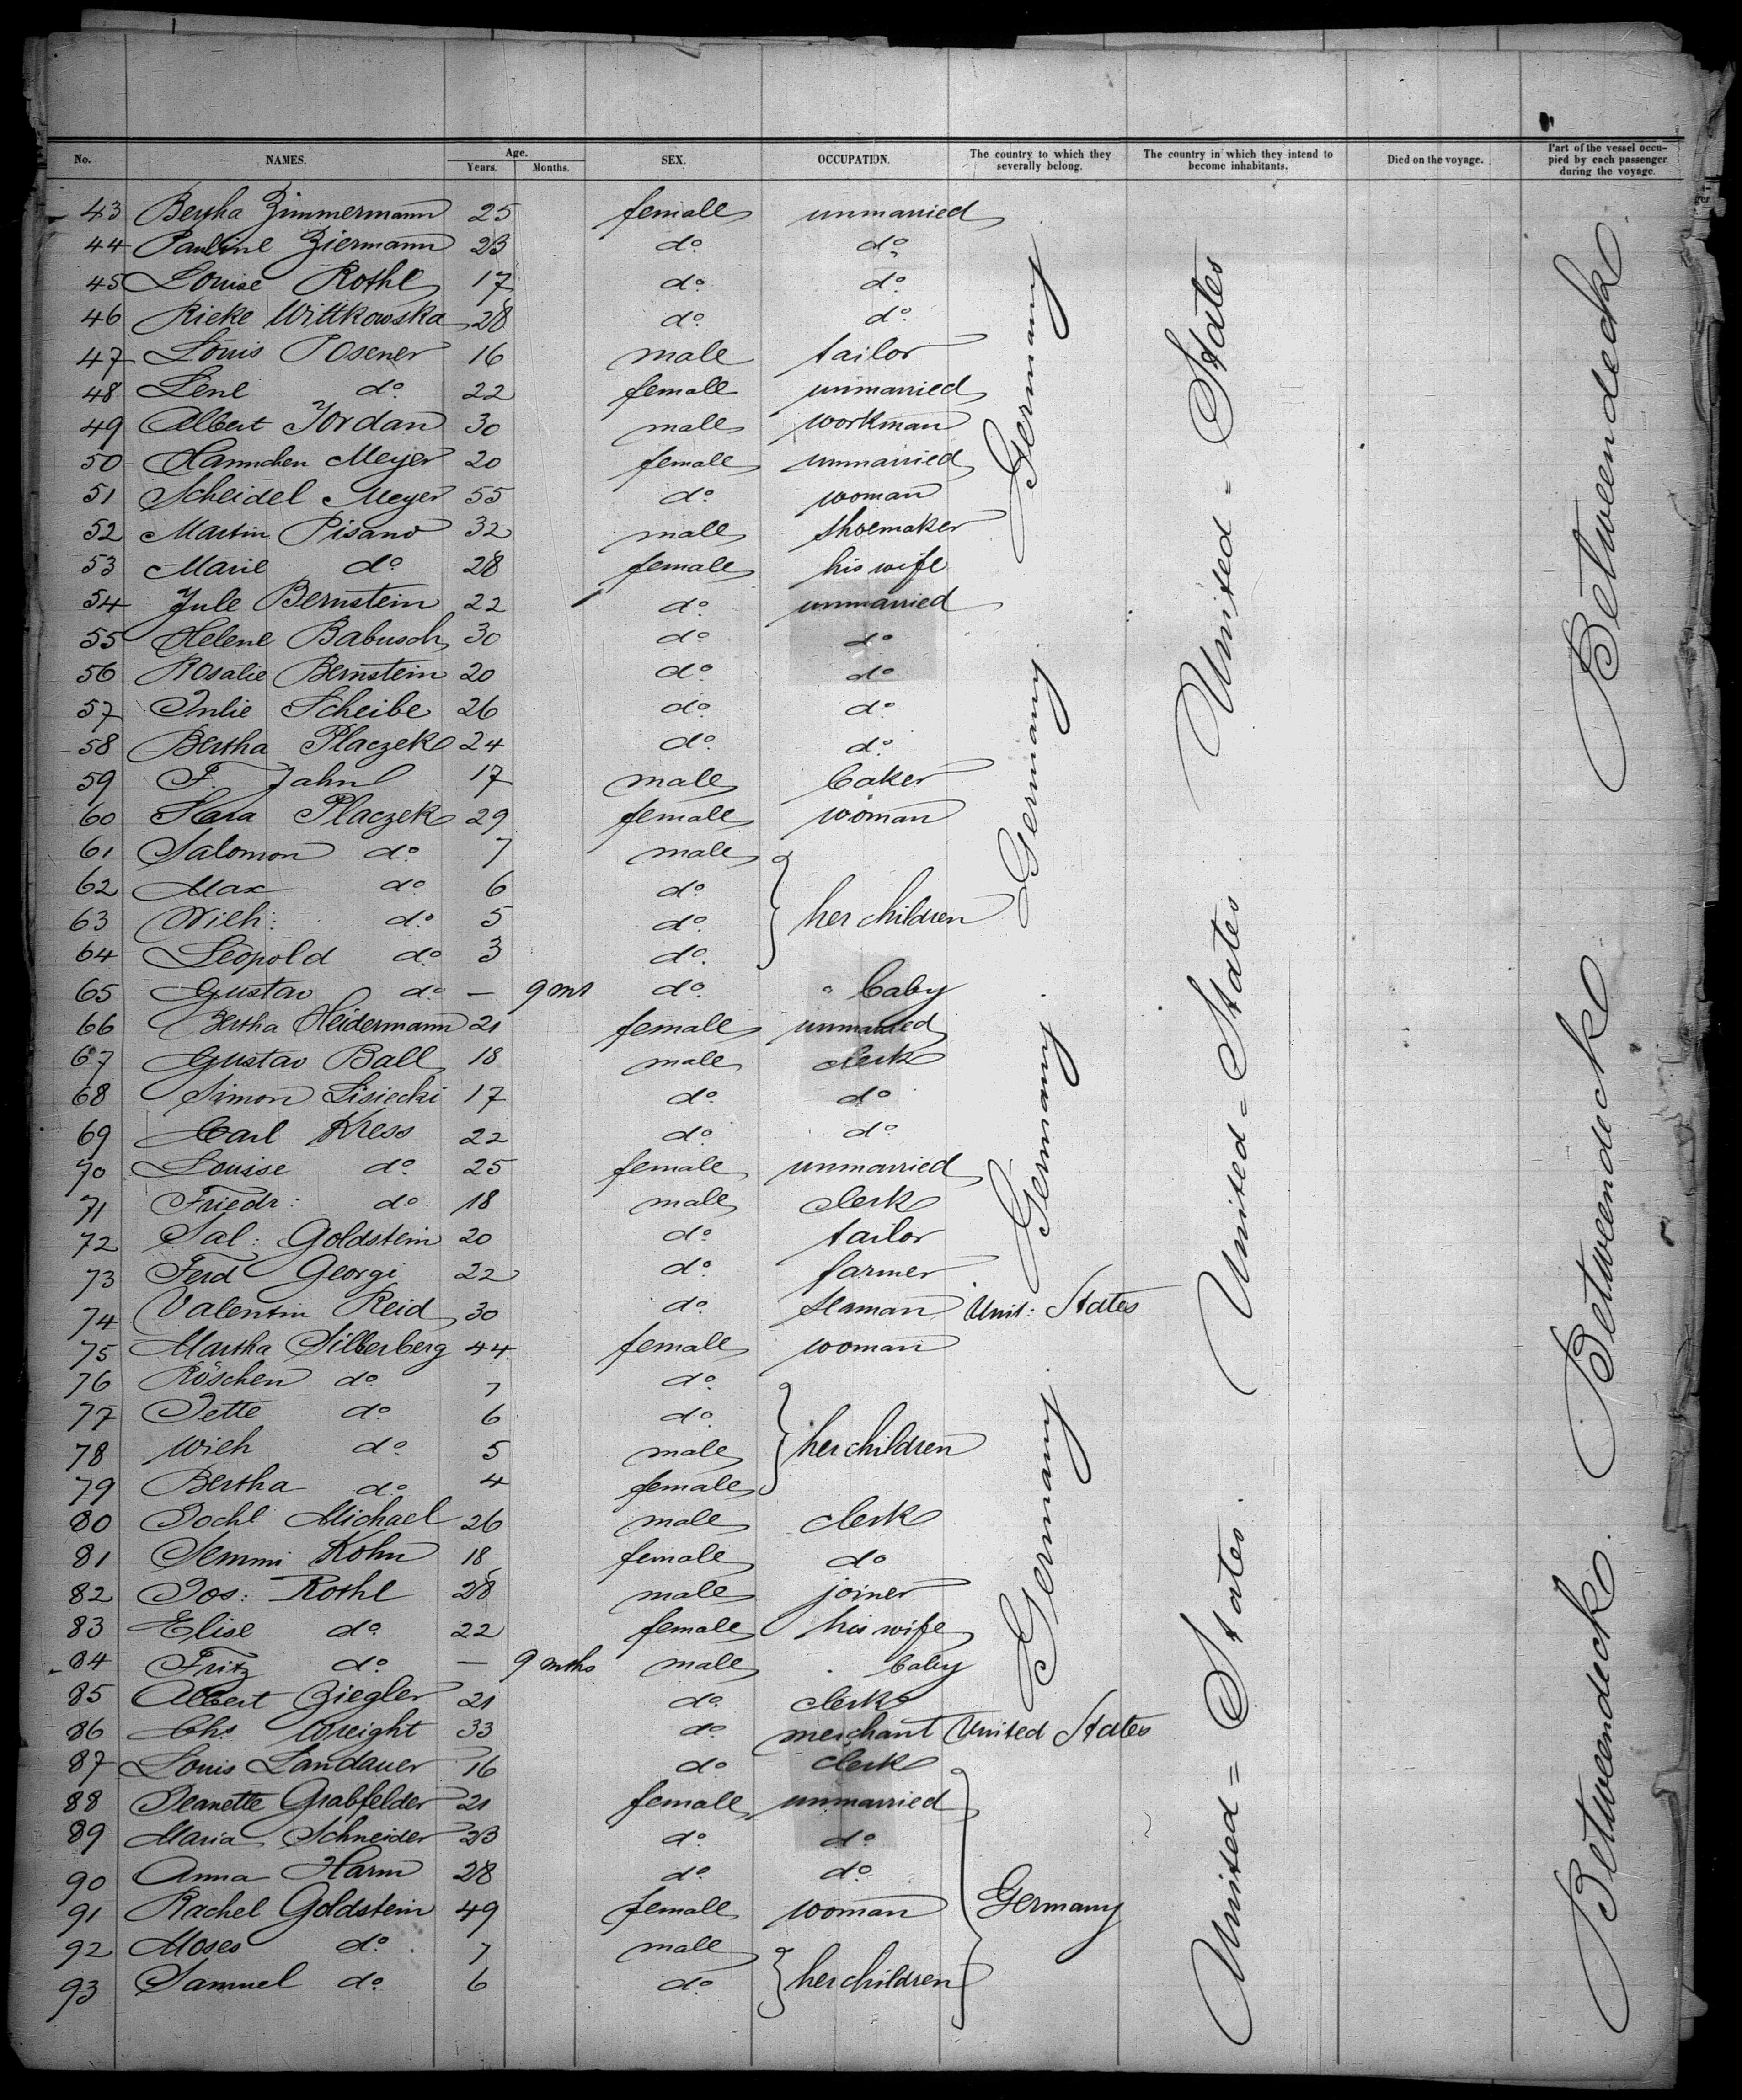 No. NAMES. Age. Years. Months. SEX. OCCUPATION. The country to which they severally belong. The country in which they intend to become inhabitants. Died on the voyage. Part of the vessel occupied by each passenger during the voyage.
43 Bertha Zimmermann 25 female unmarried
44 Pauline Ziermann 23 do. do
45 Louise Rothe 17 do. do.
46 Rieke Wittkowska 28 do. do.
47 Louis Posener 16 male tailor
48 Lene do. 22 female unmarried
49 Albert Jordan 30 male workman
50 Hannchen Meyer 20 female unmarried
51 Scheidel Meyer 55 do. woman
52 Martin Pisano 32 male shoemaker
53 Marie do 28 female his wife
54 Jule Bernstein 22 do. unmarried
55 Helene Babusch 30 do do
56 Rosalie Bernstein 20 do. do.
57 Julie Scheibe 26 do. do.
58 Bertha Placzek 24 do. do.
59 F. Jahn 17 male baker
60 Sara Placzek 29 female woman
61 Salomon do. 7 male
62 Max do 6 do.
63 Wilh: do. 5 do. her children
64 Leopold do. 3 do.
65 Gustav do. — 9 ms do. " baby
66 Bertha Heidermann 21 female unmarried
67 Gustav Ball 18 male clerk
68 Simon Lisiecki 17 do. do
69 Carl Kress 22 do. do.
70 Louise do. 25 female unmarried
71 Friedr: do 18 male clerk
72 Sal: Goldstein 20 do. tailor
73 Ferd Georgi 22 do. farmer
74 Valentin Reid 30 do. seaman Unit: States
75 Martha Silberberg 44 female woman
76 Röschen do. 7 do.
77 Jette do. 6 do.
78 Wilh do. 5 male her children
79 Bertha do. 4 female
80 Michael 26 male clerk
81 Semmi Kohn 18 female do
82 Jos: Rothe 28 male joiner
83 Elise do. 22 female his wife
84 Fritz do. — 9 mths male baby
85 Albert Ziegler 21 do. clerk
86 Chs Wreight 33 do. merchant United States
87 Louis Landauer 16 do clerk
88 Jeanette Grabfelder 21 female unmarried
89 Maria Schneider 23 do. do
90 Anna Harm 28 do. do.
91 Rachel Goldstein 49 female woman Germany
92 Moses do. 7 male
93 Samuel do. 6 do. her children
Germany
Germany.
Germany.
Germany.
United = States
United = States.
United = States.
Betweendeck.
Betweendeck.
Betweendeck.